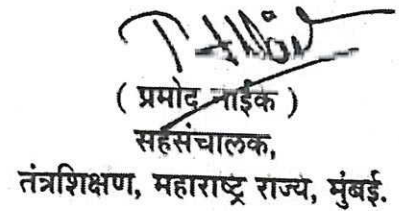 ( प्रमोद नाईक )
सहसंचालक,
तंत्रशिक्षण, महाराष्ट्र राज्य, मुंबई.